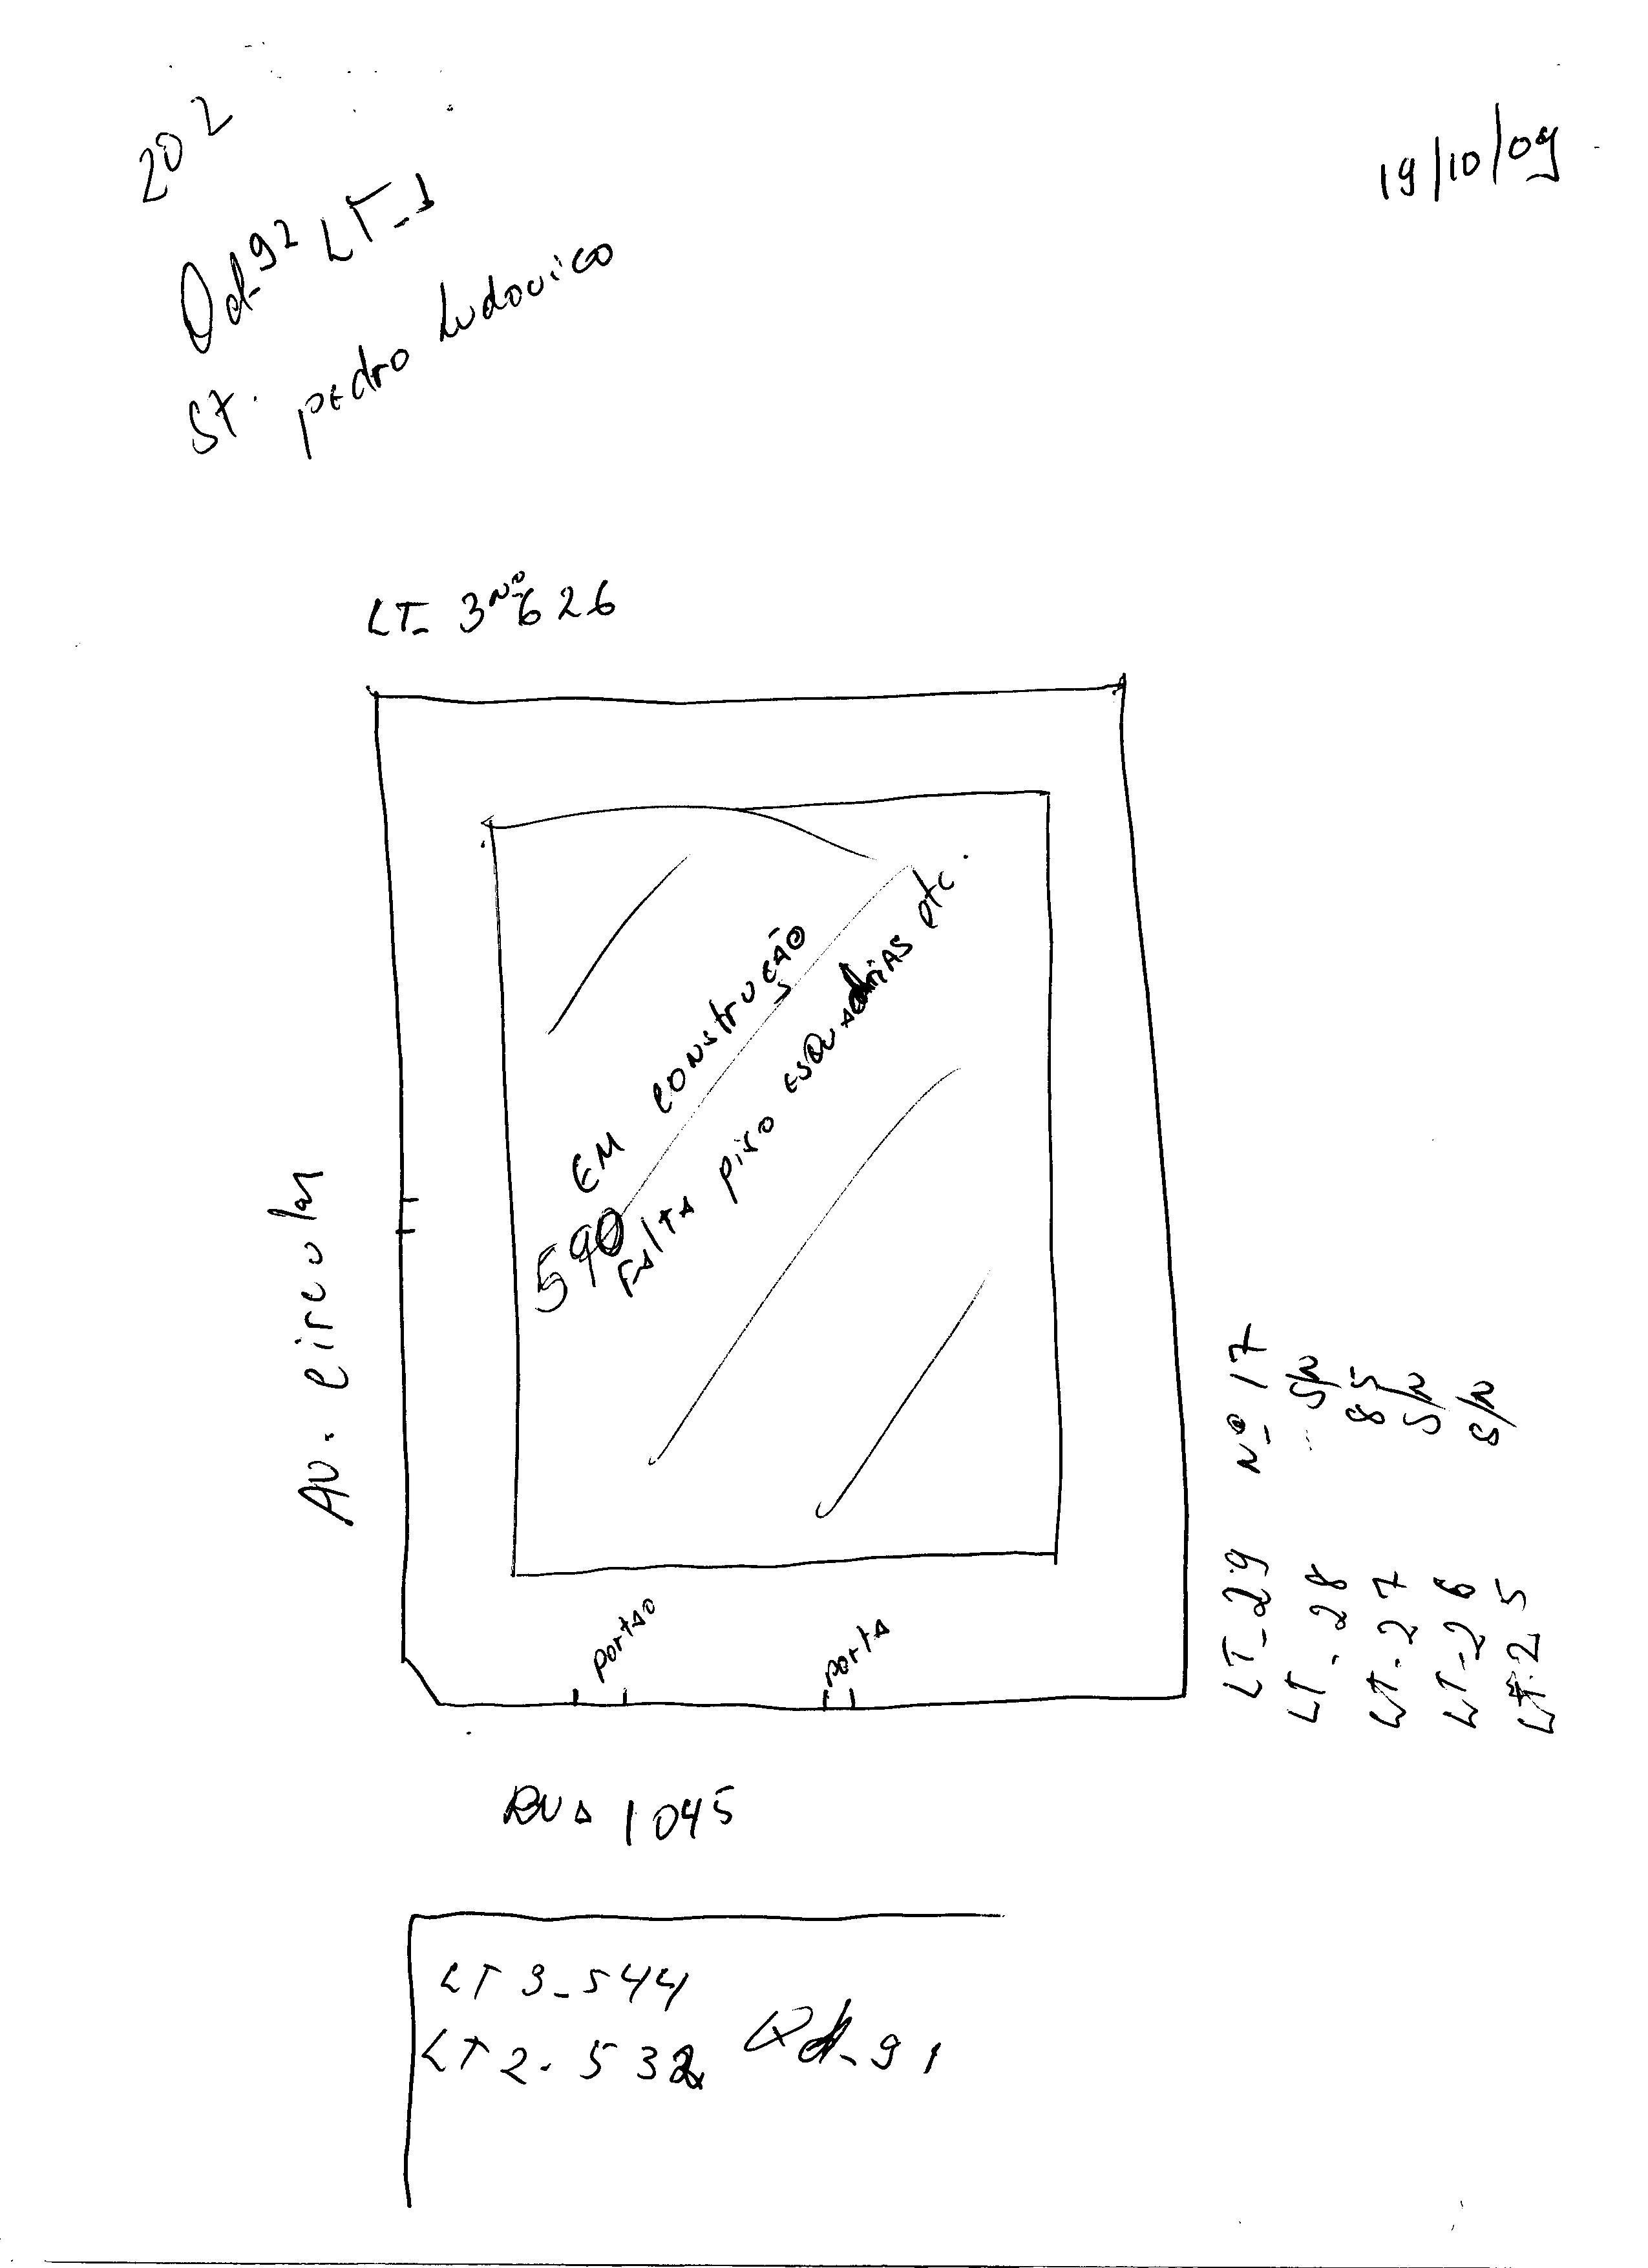 202
19/10/09
Qd-92 LT-1
St. pedro Ludovico
LT- 3 Nº 626
EM construção
590
Falta piso esquadrias etc.
Av. circular
portao
porta
LT-29 Nº 17
LT-28 S/N
LT-27 85
LT-26 S/N
LT-25 S/N
RUA 1045
LT 3-544
LT 2-532
Qd-91